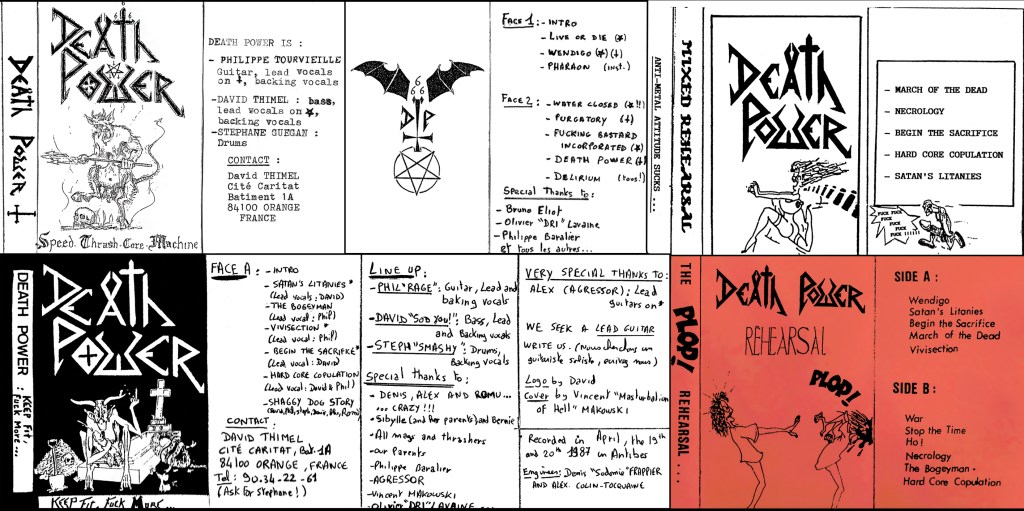 DEATH POWER
DEATH
POWER
Speed. Thrash. Core. Machine
DEATH POWER IS :
- PHILIPPE TOURVIEILLE
Guitar, lead vocals
on †, backing vocals
-DAVID THIMEL : bass,
lead vocals on *,
backing vocals
-STEPHANE GUEGAN :
Drums
CONTACT :
David THIMEL
Cité Caritat
Batiment 1A
84100 ORANGE
FRANCE
6
66
D P
FACE 1 : - INTRO
- LIVE OR DIE (*)
- WENDIGO (*) (†)
- PHARAON (inst.)
FACE 2 : - WATER CLOSED (*!!)
- PURGATORY (†)
- FUCKING BASTARD
INCORPORATED (*)
- DEATH POWER (†)
- DELIRIUM (tous!)
Special Thanks to :
- Bruno Eliot
- Olivier "DRI" Lavaine
- Philippe Baralier
et tous les autres...
ANTI-METAL ATTITUDE SUCKS ...
MIXED REHEARSAL
DEATH
POWER
- MARCH OF THE DEAD
- NECROLOGY
- BEGIN THE SACRIFICE
- HARD CORE COPULATION
- SATAN'S LITANIES
FUCK FUCK
FUCK FUCK
FUCK !!!!!
DEATH POWER : KEEP Fit, Fuck More...
DEATH
POWER
KEEP Fit, Fuck More...
FACE A : - INTRO
- SATAN'S LITANIES*
(Lead vocals : DAVID)
- THE BOGEYMAN
(Lead vocal : Phil)
- VIVISECTION *
(Lead vocal : Phil)
- BEGIN THE SACRIFICE*
(Lead vocal : David)
- HARD CORE COPULATION
(Lead vocal : David & Phil)
- SHAGGY DOG STORY
CONTACT :
DAVID THIMEL
CITÉ CARITAT, Bat. 1A
84100 ORANGE, FRANCE
Tel : 90.34-22-61
(Ask for Stephane !)
LINE UP :
- PHIL "RAGE" : Guitar, Lead and
baking vocals
- DAVID "SOD You!" : Bass, Lead
and Backing vocals
- STEPH "SMASHY" : Drums,
Backing vocals
Special thanks to :
- DENIS, ALEX AND ROMU...
... CRAZY !!!
- Sibylle (and her parents) and Bernie
- All mags and thrashers
- Our Parents
- Philippe Baralier
- AGRESSOR
- Vincent MAKOWSKI
- Olivier "DRI" LAVAINE ...
VERY SPECIAL THANKS TO :
ALEX (AGRESSOR) ; Lead
guitars on*
WE SEEK A LEAD GUITAR
WRITE US. (Nous cherchons un
guitariste soliste, ecrivez nous)
Logo by David
Cover by Vincent "Masturbation
of Hell" MAKOWSKI
Recorded in April, the 19th
and 20th 1987 in Antibes
Engineer : Denis "Sodomie" FRAPPIER
AND ALEX. COLIN-TOCQUAINE
THE PLOP! REHEARSAL ...
DEATH POWER
REHEARSAL
PLOP!
SIDE A :
Wendigo
Satan's Litanies
Begin the Sacrifice
March of the Dead
Vivisection
SIDE B :
War
Stop the Time
Ho !
Necrology
The Bogeyman
Hard Core Copulation